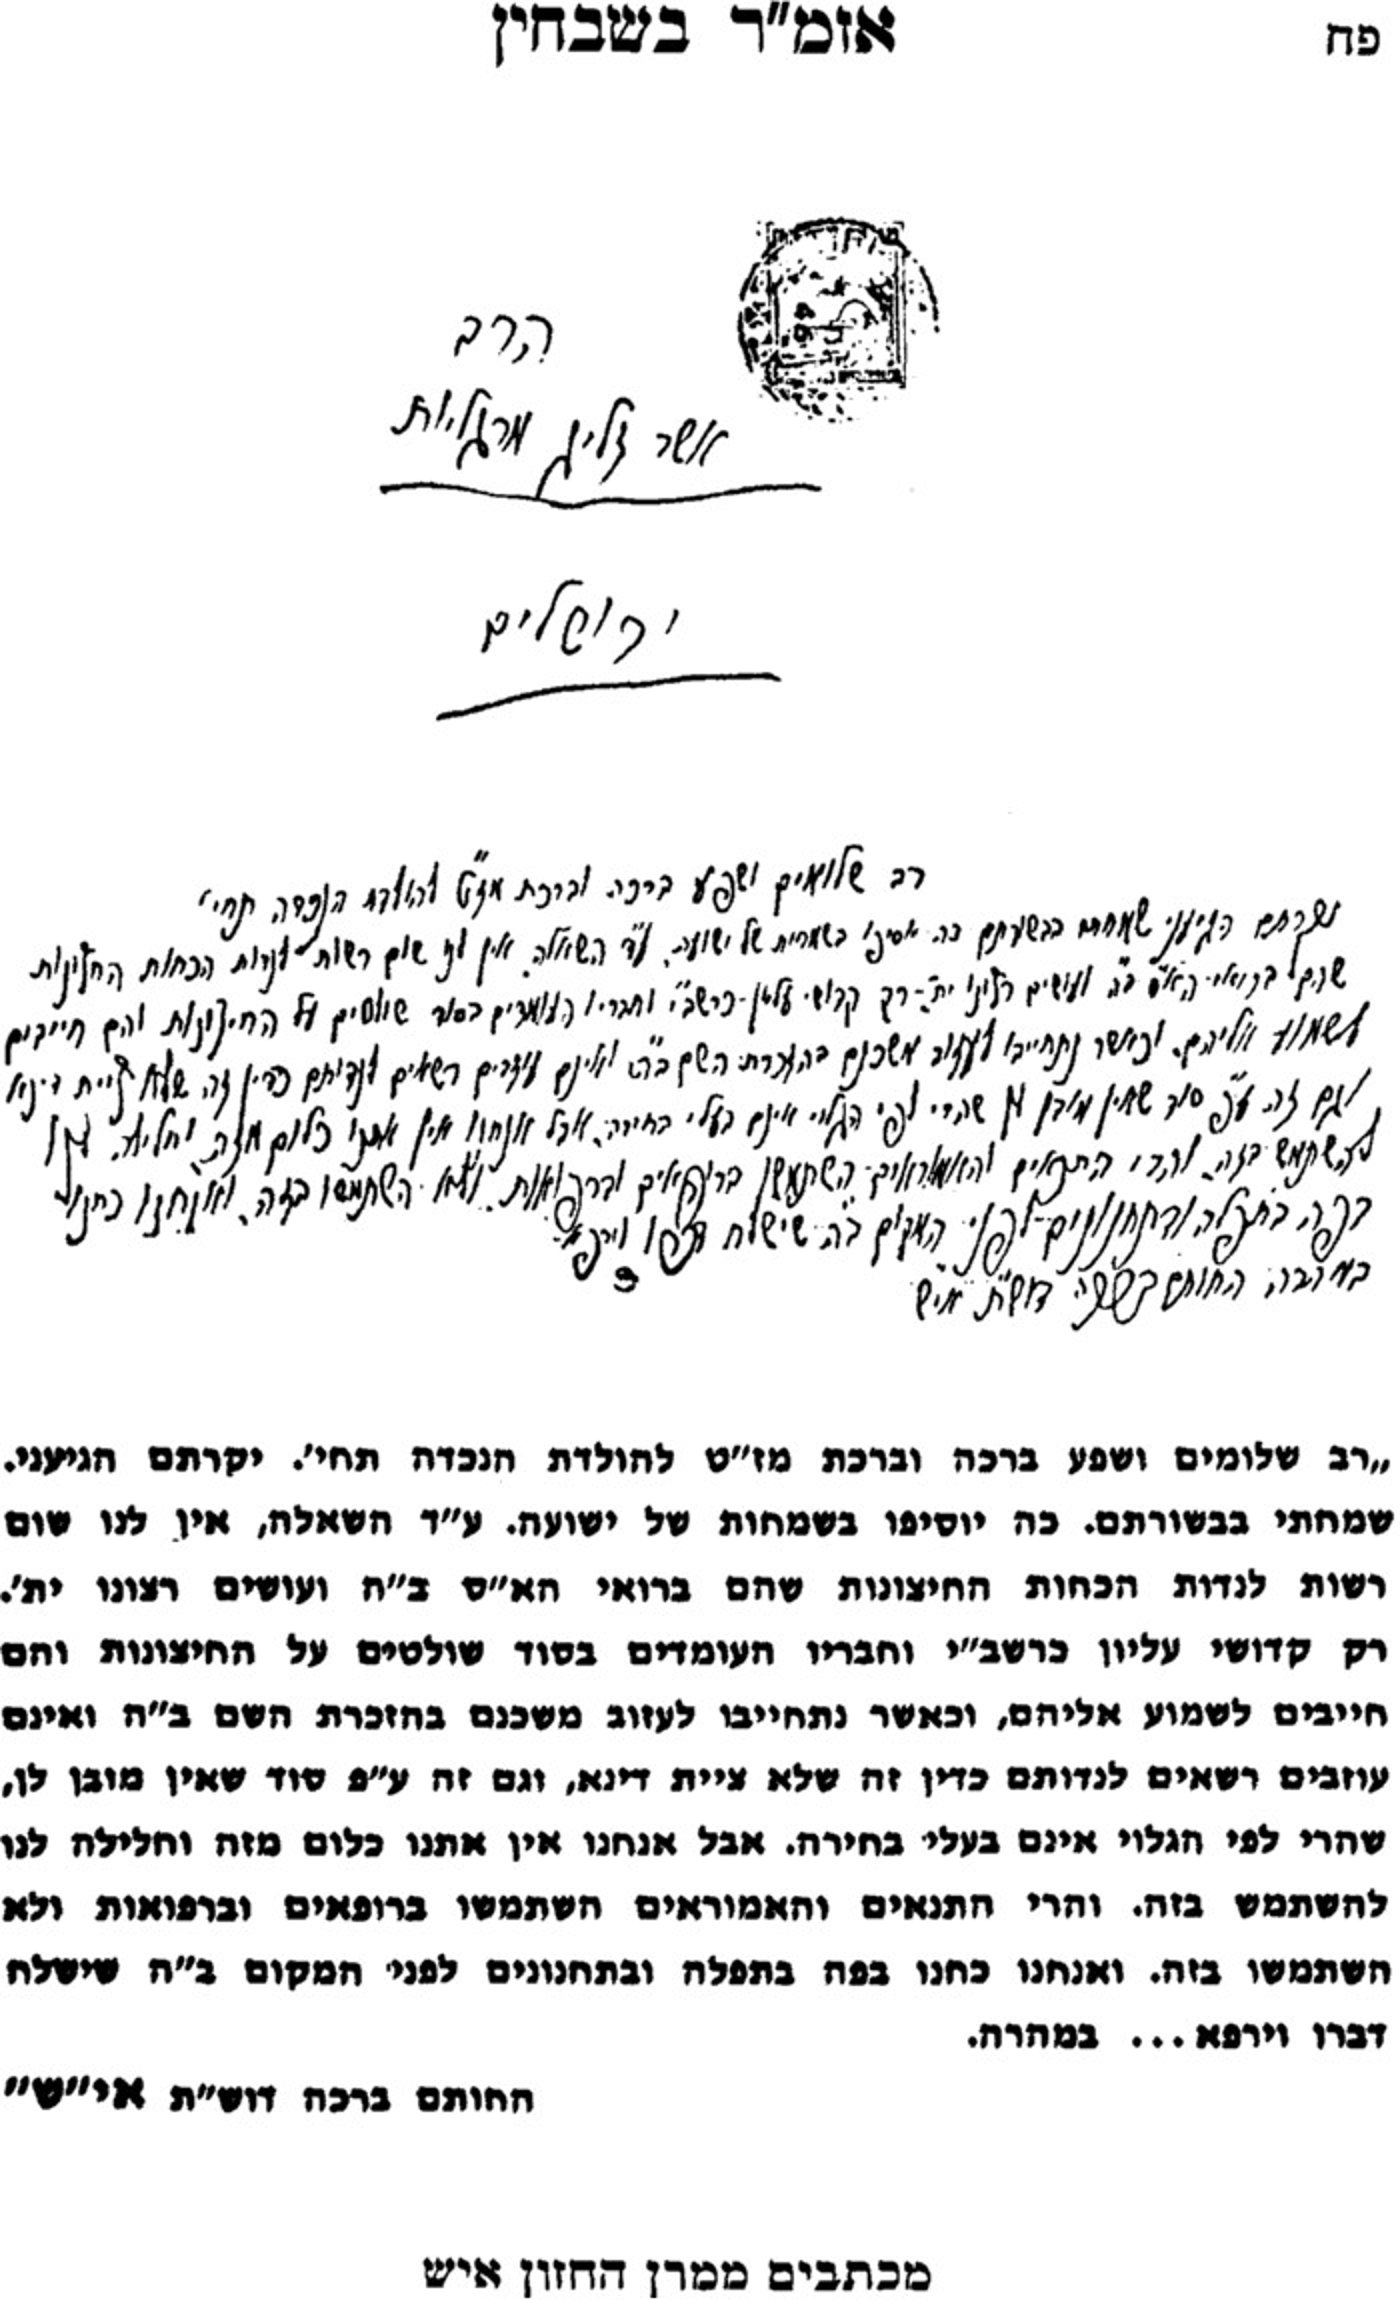 פח
אזמ"ר בשבחין
הרב
אשר זליג מרגליות
ירושלים
רב שלומים ושפע ברכה וברכת מז"ט להולדת הנכדה תחי'
יקרתם הגיעני שמחתי בבשורתם כה יוסיפו בשמחות של ישועה. ע"ד השאלה, אין לנו שום רשות לנדות הכחות החצונות
שהם ברואי הא"ס ב"ה ועושים רצונו ית' רק קדושי עליון כרשב"י וחבריו העומדים בסוד שולטים על החיצונות והם חייבים
לשמוע אליהם, וכאשר נתחייבו לעזוב משכנם בהזכרת השם ב"ה ואינם עוזבים רשאים לנדותם כדין זה שלא ציית דינא
וגם זה ע"פ סוד שאין מובן לן שהרי לפי הגלוי אינם בעלי בחירה. אבל אנחנו אין אתנו כלום מזה וחלילה לנו
להשתמש בזה. והרי התנאים והאמוראים השתמשו ברופאים וברפואות ולא השתמשו בזה, ואנחנו כחנו
בפה בתפלה ובתחנונים לפני המקום ב"ה שישלח דברו וירפא
במהרה החותם ברכה דוש"ת אי"ש
„רב שלומים ושפע ברכה וברכת מז"ט להולדת הנכדה תחי'. יקרתם הגיעני.
שמחתי בבשורתם. כה יוסיפו בשמחות של ישועה. ע"ד השאלה, אין לנו שום
רשות לנדות הכחות החיצונות שהם ברואי הא"ס ב"ה ועושים רצונו ית'.
רק קדושי עליון כרשב"י וחבריו העומדים בסוד שולטים על החיצונות והם
חייבים לשמוע אליהם, וכאשר נתחייבו לעזוב משכנם בהזכרת השם ב"ה ואינם
עוזבים רשאים לנדותם כדין זה שלא ציית דינא, וגם זה ע"פ סוד שאין מובן לן,
שהרי לפי הגלוי אינם בעלי בחירה. אבל אנחנו אין אתנו כלום מזה וחלילה לנו
להשתמש בזה. והרי התנאים והאמוראים השתמשו ברופאים וברפואות ולא
השתמשו בזה. ואנחנו כחנו בפה בתפלה ובתחנונים לפני המקום ב"ה שישלח
דברו וירפא... במהרה.
החותם ברכה דוש"ת אי"ש"
מכתבים ממרן החזון איש